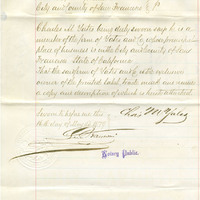 City and County of San Francisco } ss
Charles M. Yates being duly sworn says he is a
member of the firm of Yates and Co, whose principal
place of business is in the City and County of San
Francisco State of California
That the said firm of Yates and Co is the
owner of the printed label, trade mark and
a copy and description of which is hereto attached
Sworn to before me this
16th day of
Chas M Yates
Notary Public.